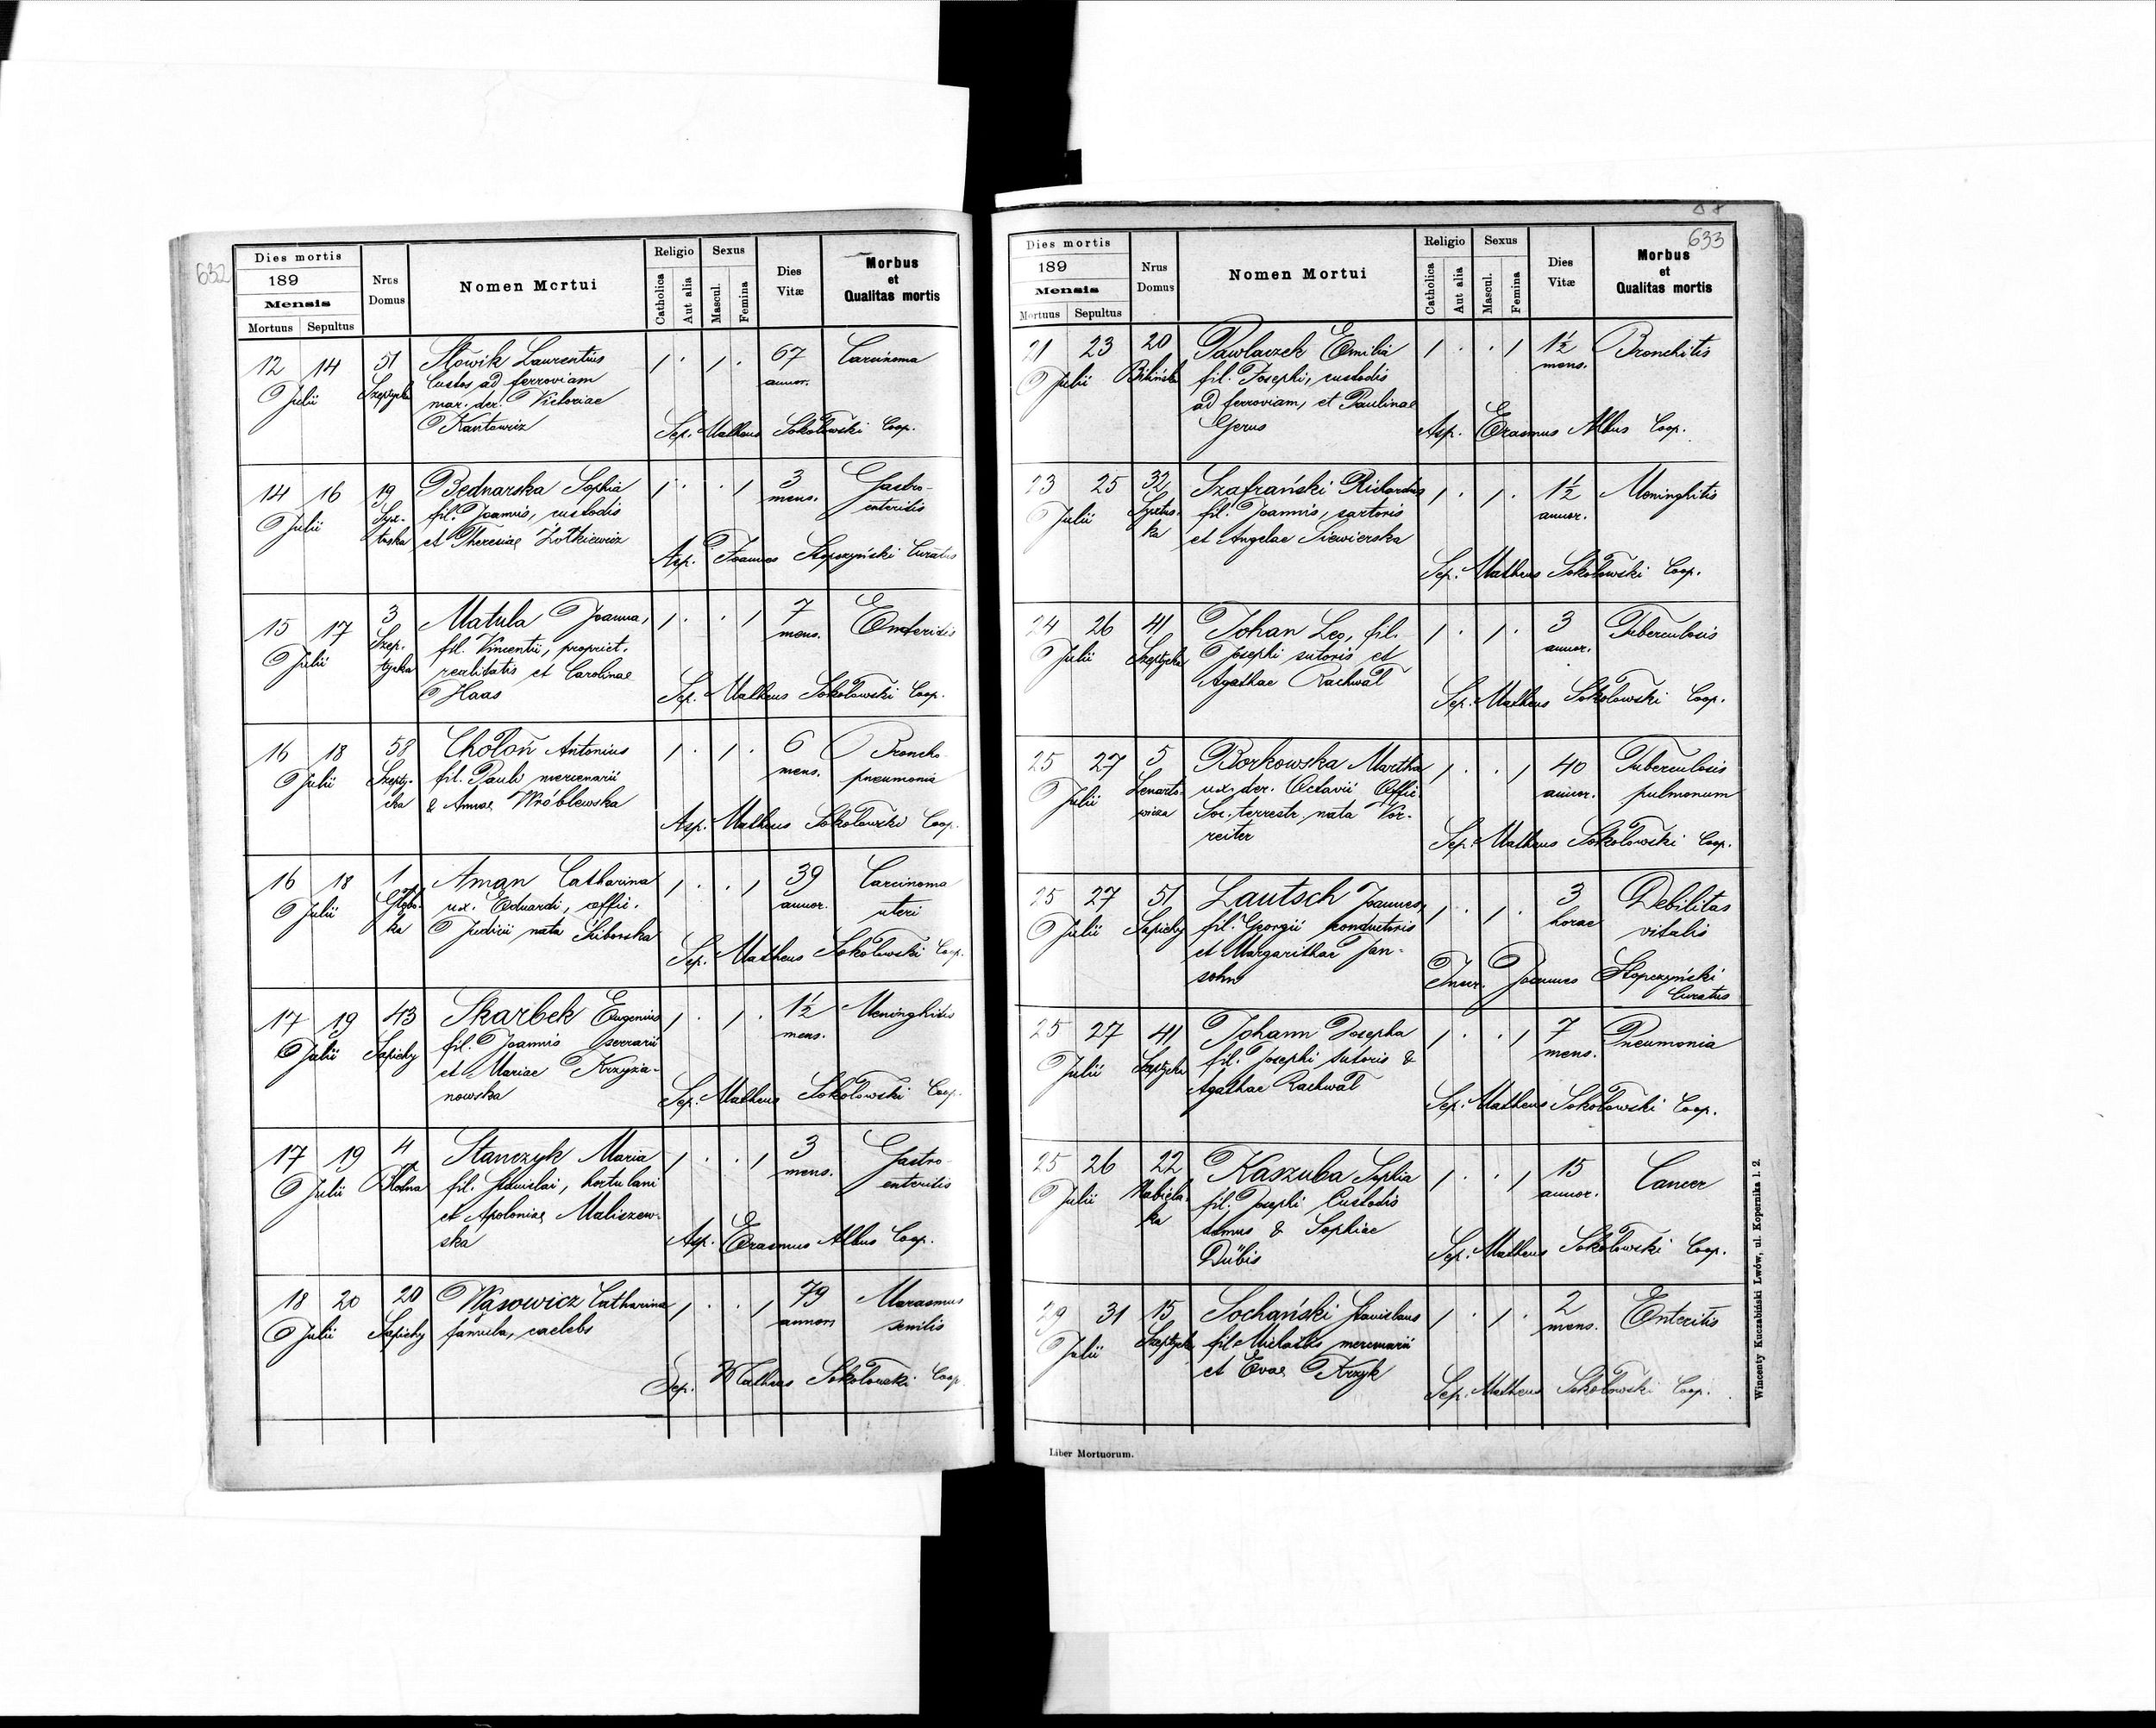 632
Dies mortis
189
Mensis
Mortuus Sepultus
Nrus Domus
Nomen Mortui
Religio
Catholica
Aut alia
Sexus
Mascul.
Femina
Dies Vitæ
Morbus
et
Qualitas mortis
12 14 51 Słowik Laurentius 1 · 1 · 67 Carcinoma
Julii Szeptyckich custos ad ferroviam annor.
mar. der. Victoriae
Kantowicz Sep. Matheus Sokołowski Coop.
14 16 19 Bednarska Sophia 1 · · 1 3 Gastro-
Julii Syx- fil. Joannis, custodis mens. enteritis
tuska et Theresiae Żółkiewicz
Asp. Joannes Stopczyński Curatus
15 17 3 Matula Joanna, 1 · · 1 7 Enteritis
Julii Szep- fil. Vincentii, propriet. mens.
tycka realitatis et Carolinae
Haas Sep. Matheus Sokołowski Coop.
16 18 58 Chołoń Antonius 1 · 1 · 6 Broncho
Julii Szepty- fil. Pauli mercenarii mens. pneumonia
cka & Annae Wróblewska
Asp. Matheus Sokołowski Coop.
16 18 1 Aman Catharina 1 · · 1 39 Carcinoma
Julii Głębo- ux. Eduardi, offic. annor. uteri
ka Judicii nata Skiborska
Sep. Matheus Sokołowski Coop.
17 19 43 Skarbek Eugenius 1 · 1 · 1½ Meninghitis
Julii Sapiehy fil. Joannis serrarii mens.
et Mariae Krzyża-
nowska Sep. Matheus Sokołowski Coop.
17 19 4 Stanczyk Maria 1 · · 1 3 Gastro-
Julii fil. Stanislai, hortulani mens. enteritis
et Apoloniae Maliszew-
ska Asp. Erasmus Albus Coop.
18 20 20 Wąsowicz Catharina 1 · · 1 79 Marasmus
Julii Sapiehy famula, caelebs annors senilis
Sep. Matheus Sokołowski Coop.
633
Dies mortis
189
Mensis
Mortuus Sepultus
Nrus Domus
Nomen Mortui
Religio
Catholica
Aut alia
Sexus
Mascul.
Femina
Dies Vitæ
Morbus
et
Qualitas mortis
21 23 20 Pawlaczek Emilia 1 · · 1 1½ Bronchitis
Julii Bilińsk. fil. Josephi, custodis mens.
ad ferroviam, et Paulinae
Gerus Asp. Erasmus Albus Coop.
23 25 32 Szafrański Richardus 1 · 1 · 1½ Meninghitis
Julii Syxtus- fil. Joannis, sartoris annor.
ka et Angelae Siewierska
Sep. Matheus Sokołowski Coop.
24 26 41 Johan Leo, fil. 1 · 1 · 3 Tuberculosis
Julii Szeptycka Josephi sutoris et annor.
Agathae Rachwał
Sep. Matheus Sokołowski Coop.
25 27 5 Borkowska Martha 1 · · 1 40 Tuberculosis
Julii Lenarto- ux. der. Octavii Offic. annor. pulmonum
wicza Soc. terrestr. nata Vor-
reiter Sep. Matheus Sokołowski Coop.
25 27 51 Lautsch Joannes, 1 · 1 · 3 Debilitas
Julii Sapiehy fil. Georgii konductoris horae vitalis
et Margarithae Jan-
sohn Joannes Stopczyński
Curatus
25 27 41 Johann Josepha 1 · · 1 7 Pneumonia
Julii Szeptycka fil. Josephi sutoris & mens.
Agathae Rachwał
Sep. Matheus Sokołowski Coop.
25 26 22 Kaszuba Sophia 1 · · 1 15 Cancer
Julii Nabiela- fil. Josephi Custodis annor.
ka domus & Sophiae
Dübis Sep. Matheus Sokołowski Coop.
29 31 15 Sochański Stanislaus 1 · 1 · 2 Enteritis
Julii Szeptycka fil. Michaelis mercenarii mens.
et Evae Krzyk
Sep. Matheus Sokołowski Coop.
Liber Mortuorum.
Wincenty Kuczabiński Lwów, ul. Kopernika l. 2.